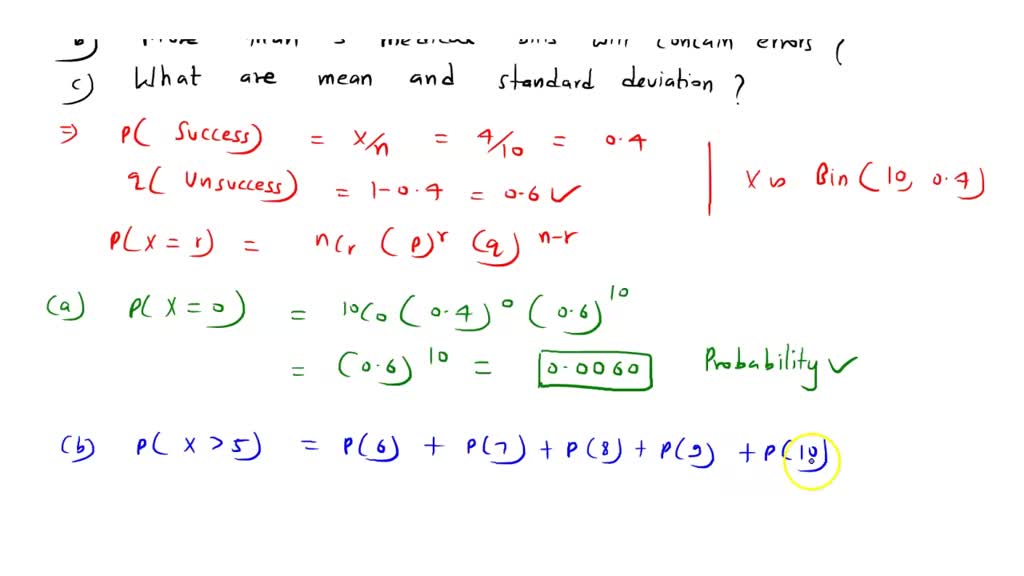 b) More than 5 medical bills will contain errors (
c) What are mean and standard deviation ?
⇒ P( Success) = x/n = 4/10 = 0.4
q( Unsuccess) = 1-0.4 = 0.6 ✓
X ~ Bin(10, 0.4)
P(X = r) = nCr (p)^r (q)^n-r
(a) P(X = 0) = 10C0 (0.4)^0 (0.6)^10
= (0.6)^10 = 0.0060 Probability ✓
(b) P( X > 5) = P(6) + P(7) + P(8) + P(9) + P(10)